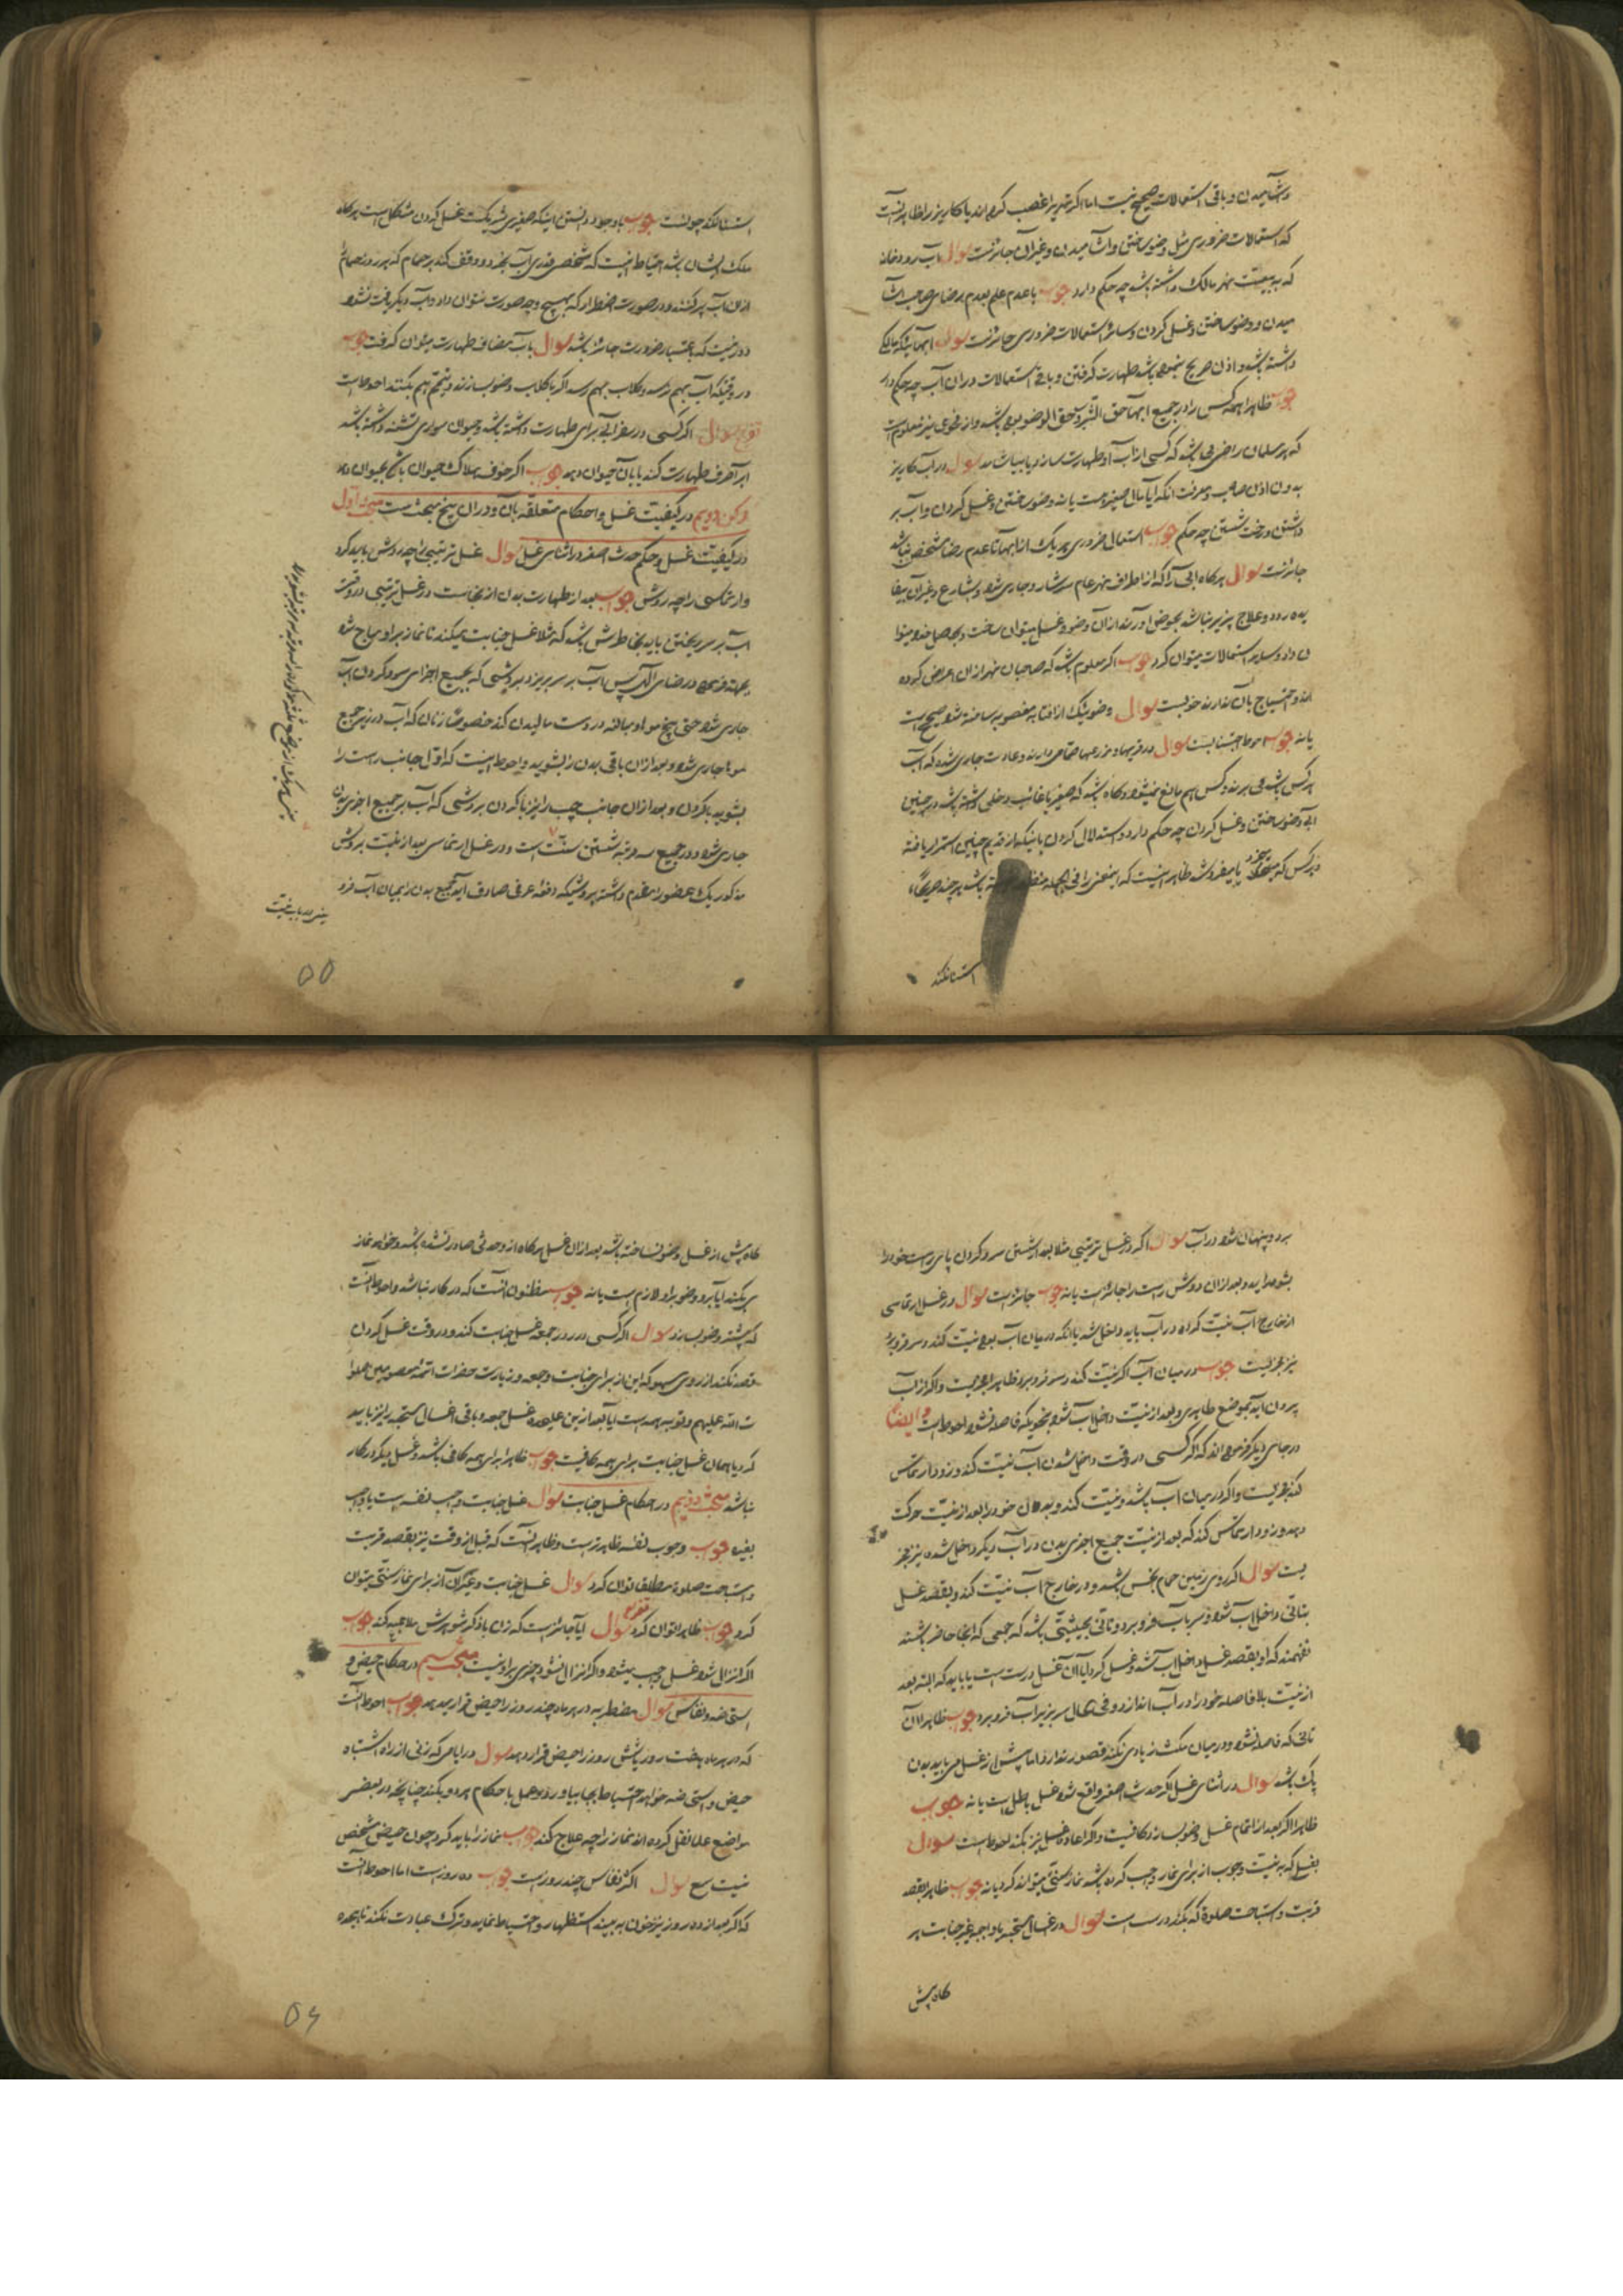 وآشامیدن و باقی استعمالات صحیح نیست اما اگر نهر را غصب کرده اند یا کاریز را ظاهر آنست
که استعمالات ضروری مثل وضو ساختن و آشامیدن و غیر آن جایزست سوال آب رودخانه
که به تبعیت نهر مالک داشته باشد چه حکم دارد جواب با عدم علم بعدم رضای صاحب آشا
میدن و وضو ساختن و غسل کردن و سائر استعمالات ضروری جائزست سوال آبهائیکه مالکی
داشته باشد و اذن صریح نبوده باشد طهارت گرفتن و باقی استعمالات در آن آب چه حکم دارد
جواب ظاهرا همه کس را در جمیع آبها حق الشرب و حق الوضو بوده باشد و از فحوی نیز معلومست
که هر مسلمان راضی می باشد که کسی از آب او طهارت سازد یا بیاشامد سوال در آب کاریز
بدون اذن صاحب و معرفت آنکه آیا مال صغیر هست یا نه وضو ساختن و غسل کردن و آب بر
داشتن و رخت شستن چه حکم جواب استعمال ضروری هر یک از اینها تا عدم رضا مشخص نباشد
جائزست سوال هرگاه آبی را که از اطراف نهر عام سرشار و جاری شود و بشارع و غیر آن بیفا
یده رود و علاج پذیر نباشد بحوض آورند از آن وضو و غسل میتوان ساخت و بحاصل خود میتوا
ن داد و سایر استعمالات میتوان کرد جواب اگر معلوم باشد که صاحبان نهر از آن اعراض کرده
اند و احتیاج بآن ندارند خوبست سوال وضوئیکه از آفتابه مغصوب ساخته شود صحیح است
یا نه جواب احوط اجتنابست سوال در قریها و مزرعها حمامی دارند و عادت جاری شده که آب
هر کس باشد می برند و کس هم مانع نمیشود و گاه باشد که صغیر یا غائب دخلی داشته باشد در چنین
آبی وضو ساختن و غسل کردن چه حکم دارد و استدلال کردن باینکه از قدیم چنین استمرار یافته
و هر کس که میخرد یا میفروشد ظاهر اینست که اینمعنی را فی الجمله باشد هر چند صریحا
استثنا نکند
استثنا نکند چونست جواب با وجود دانستن اینکه صغیری شریکست غسل کردن مشکل است هرگاه
ملک ایشان باشد احتیاط اینست که شخصی قدری آب بخرد و وقف کند بر حمام که هر روز حمام
از آن آب پر کنند و در صورت اضطرار که بهیچ وجه صورت نتوان داد و آب دیگر یافت نشود
دور نیست که باعتبار ضرورت جائز باشد سوال بآب مضاف طهارت میتوان گرفت جواب
در وقتیکه آب بهم نرسد و گلاب بهم رسد اگر با گلاب وضو بسازند و تیمم هم بکنند احوطست
سوال اگر کسی در سفر آبی برای طهارت داشته باشد و حیوان سواری تشنه داشته باشد
آیا صرف طهارت کند یا بآن حیوان دهد جواب اگر خوف هلاک حیوان باشد بحیوان دهد
رکن دویم در کیفیت غسل و احکام متعلقه بآن و در آن پنج مبحث است مبحث اول
در کیفیت غسل و حکم حدث اصغر در اثنای غسل سوال غسل ترتیبی را چه روش باید کرد
و ارتماسی را چه روش جواب بعد از طهارت بدن از نجاست در غسل ترتیبی در وقت
آب بر سر ریختن باید بخاطرش باشد که مثلا غسل جنابت میکند تا نماز بر او مباح شود
بجهة فرمان و رضای الهی پس آب بر سر بریزد بروشی که بجمیع اجزای سر و گردن آب
جاری شود حتی بیخ مو و مبالغه در دست مالیدن کند خصوصا زنان که آب در زیر جمیع
موها جاری شود و بعد از آن باقی بدن را بشوید و احوط اینست که اول جانب راست را
بشوید با گردن و بعد از آن جانب چپ را نیز با گردن بروشی که آب بر جمیع اجزای بدن
جاری شود و در جمیع سه مرتبه شستن سنت است و در غسل ارتماسی بعد از نیت بروش
مذکور یک عضو را مقدم داشته بروشیکه دفعه عرفی صادق آید جمیع بدن را بمیان آب فرو
۵۵
برد و پنهان شود در آب سوال اگر در غسل ترتیبی مثلا بعد از شستن سر و گردن پای راست خود را
بشوید و بعد از آن دوش راست را جائز است یا نه جواب جائز است سوال در غسل ارتماسی
از خارج آب نیت کرده در آب باید داخل شد یا آنکه در میان آب بوده نیت کند و سر فرو برد
نیز مجزیست جواب در میان آب اگر نیت کند و سر فرو برد ظاهرا مجزیست و اگر از آب
بیرون آید بموضع طاهری و بعد از نیت داخل آب شود بنحویکه فاصله نشود احوط است و ایضا
در جای دیگر فرموده اند که اگر کسی در وقت داخل شدن آب نیت کند و زود ارتماس
کند مجزیست و اگر در میان آب باشد و نیت کند و بدن خود را بعد از نیت حرکت
دهد و زود ارتماس کند که بعد از نیت جمیع اجزای بدن در آب دیگر داخل شده نیز مجز
یست سوال اگر روی زمین حمام نجس باشد و در خارج آب نیت کند و بقصد غسل
بتأنی داخل آب شود و سر بآب فرو برد و تأنی بحیثیتی باشد که جمعی که آنجا حاضر باشند
نفهمند که او بقصد غسل داخل آب شد و غسل کرد آیا آن غسل درست است یا باید که البته بعد
از نیت بلا فاصله خود را در آب اندازد و فی الحال سر بزیر آب فرو برد جواب ظاهرا آن
تأنی که فاصله نشود و در میان مکث زیادی نکند قصور ندارد اما پیش از غسل می باید بدن
پاک باشد سوال در اثنای غسل اگر حدث اصغر واقع شود غسل باطل است یا نه جواب
ظاهرا اگر بعد از اتمام غسل وضو بسازد کافیست و اگر اعاده غسل نیز بکند احوط است سوال
بغسلی که به نیت وجوب از برای نماز واجب کرده باشد نماز سنتی میتواند کرد یا نه جواب ظاهرا بقصد
قربت و استباحت صلوة که بکند درست است سوال در غسل مستحب یا واجب غیر جنابت هر
گاه پیش
گاه پیش از غسل وضو نساخته باشد بعد از آن غسل هرگاه از او حدثی صادر نشده باشد و خواهد نماز
بکند آیا برو وضو بر او لازم است یا نه جواب مظنون آنست که در کار نباشد و احوط آنست
که پیشتر وضو بسازد سوال اگر کسی در روز جمعه غسل جنابت کند و در وقت غسل کردن
قصد نکند از روی سهو که این از برای جنابت و جمعه و زیارت حضرات ائمه معصومین صلوا
ت الله علیهم و توبه همه است آیا بعد ازین علیحده غسل جمعه و باقی اغسال مستحبه را نیز باید
کرد یا همان غسل جنابت برای همه کافیست جواب ظاهرا برای همه کافی باشد و غسل دیگر در کار
نباشد مبحث دویم در احکام غسل جنابت سوال غسل جنابت واجب لنفسه است یا واجب
لغیره جواب وجوب لنفسه ظاهرترست و ظاهر آنست که قبل از وقت نیز بقصد قربت
و استباحت صلوة مطلقا توان کرد سوال غسل جنابت و غیر آن از برای نماز سنتی میتوان
کرد جواب ظاهرا توان کرد سوال آیا جائز است که زن با ذکر شوهرش ملاعبه کند جواب
اگر انزال شود غسل واجب میشود و اگر انزال نشود چیزی بر او نیست مبحث سیم در احکام حیض و
استحاضه و نفاس سوال مضطربه در هر ماه چند روز را حیض قرار میدهد جواب احوط آنست
که در هر ماه هفت روز یا شش روز را حیض قرار دهد سوال در ایامی که زنی از راه اشتباه
حیض و استحاضه خواهد احتیاط بجا بیاورد و عمل باحکام هر دو بکند چنانچه در بعضی
مواضع علما نقل کرده اند نماز را چه علاج کند جواب نماز را باید کرد چون حیض مشخص
نیست سوال اکثر نفاس چند روز است جواب ده روز است اما احوط آنست
که اگر بعد از ده روز نیز خون به بیند استظهار و احتیاط نماید و ترک عبادت نکند تا هجده
۵۶